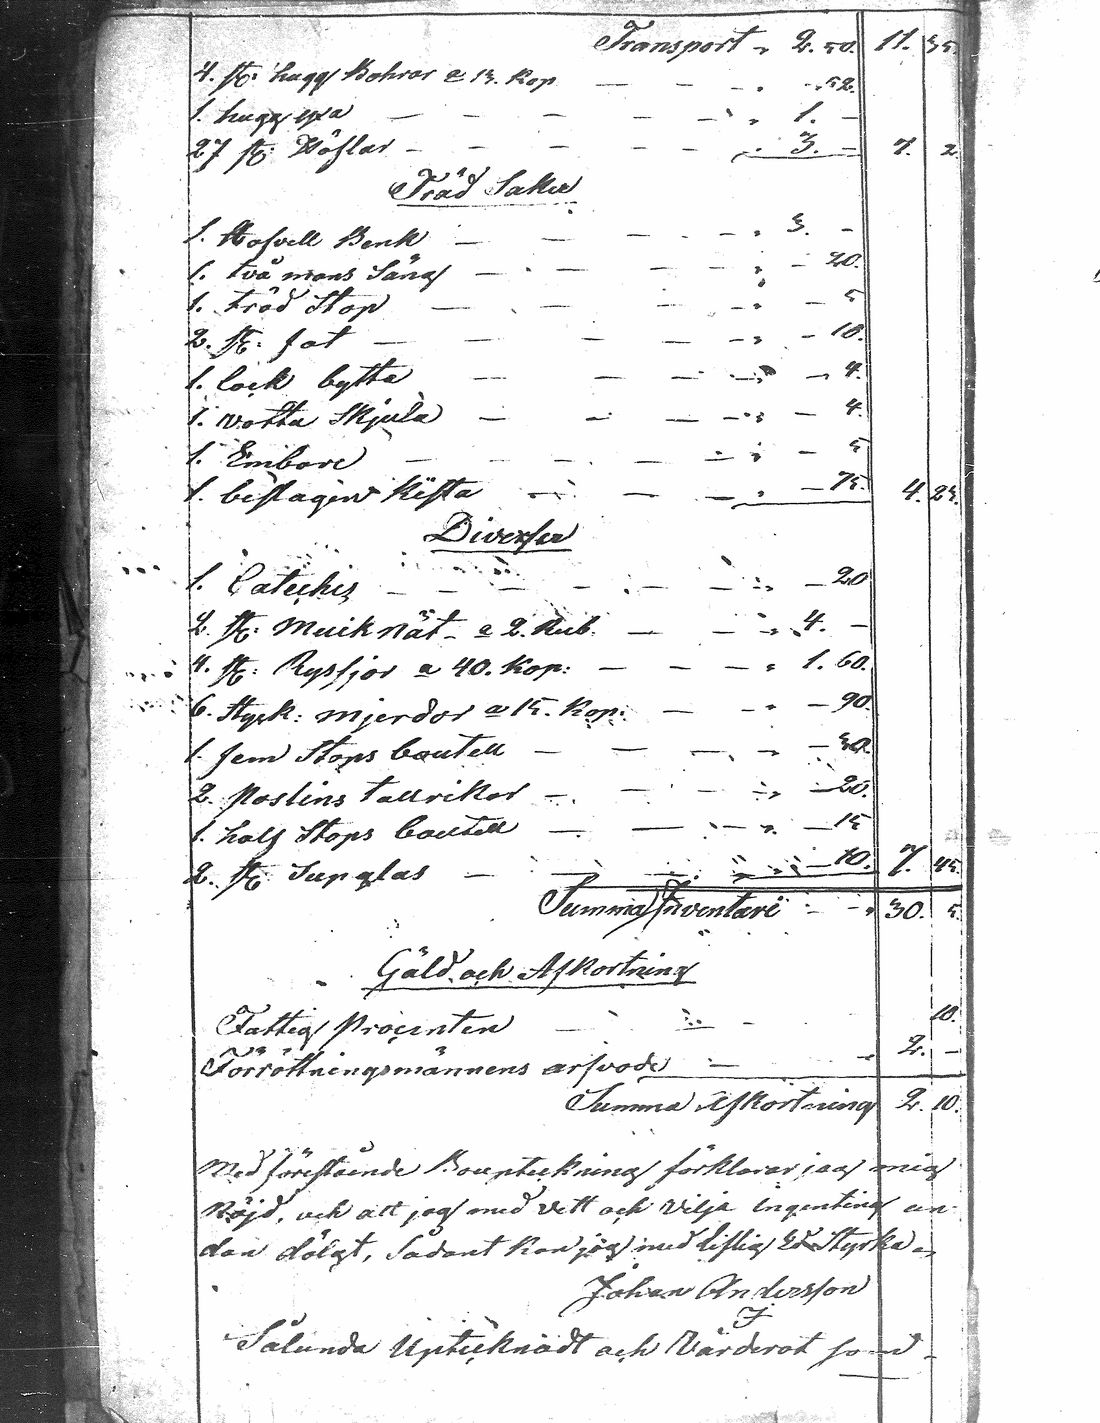 Transport „ 2. 50. 11. 35.
4. st: hugg Bohrar a 13. Kop — — „ „ 52.
1. hugg yxa — — — — — „ 1. —
27 st: Höflar — — — — — „ 3. — 7. 2.
Träd Saker
1. Hofvell Benk — — — - „ 3. -
1. två mans Säng — — — — „ — 20.
1. träd Stop — — — — „ — 5
2. st: fat — — — — „ — 10.
1. lock bytta — — — „ — 4.
1. votta Skjula — — — „ — 4.
1. Embare — — — — „ — 5
1. beslagen Kista — — — „ — 75. 4. 23.
Diverser
1. Cateches — — — — — „ — 20
2. st: Muik nät - a 2. Rub. — — „ 4. —
4. st: Ryssjor a 40. Kop: — — — „ 1. 60.
6. Styck: mjerdor a 15. Kop: — — „ — 90.
1. fem Stops Boutell — — — „ — 30.
2. Poslins tallrikar — — — „ — 20.
1. half Stops Boutell — — — „ — 15
2. st: Supglas — — — — „ — 10. 7. 45.
Summa Inventarii — — „ 30. 5.
Gäld och Afkortning
Fattig Procenten — — — 10.
Förrättningsmännens arfvode — „ 2. —
Summa Afkortning 2. 10.
Med förestående Bouptekning förklarar jag mig
Nöjd, och att jag med vett och vilja ingenting un-
dan dölgt, Sådant kan jag med liflig Ed Styrka „
Johan Andersson
Sålunda Uptecknadt och Värderat